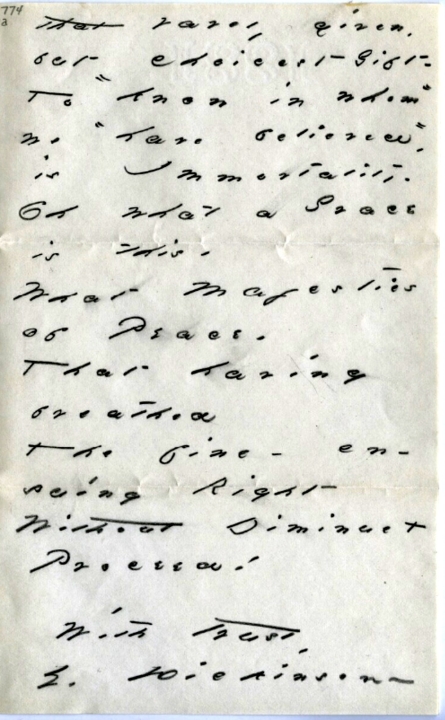 774
That rarely given,
but choicest Gift -
To "know in whom"
we "have believed",
is Immortality.
Oh what a Grace
is this.
What Majesties
of Peace.
That having
breathed
The fine - en-
suing Right
Without Diminuet
Proceed!
With trust,
E. Dickinson -